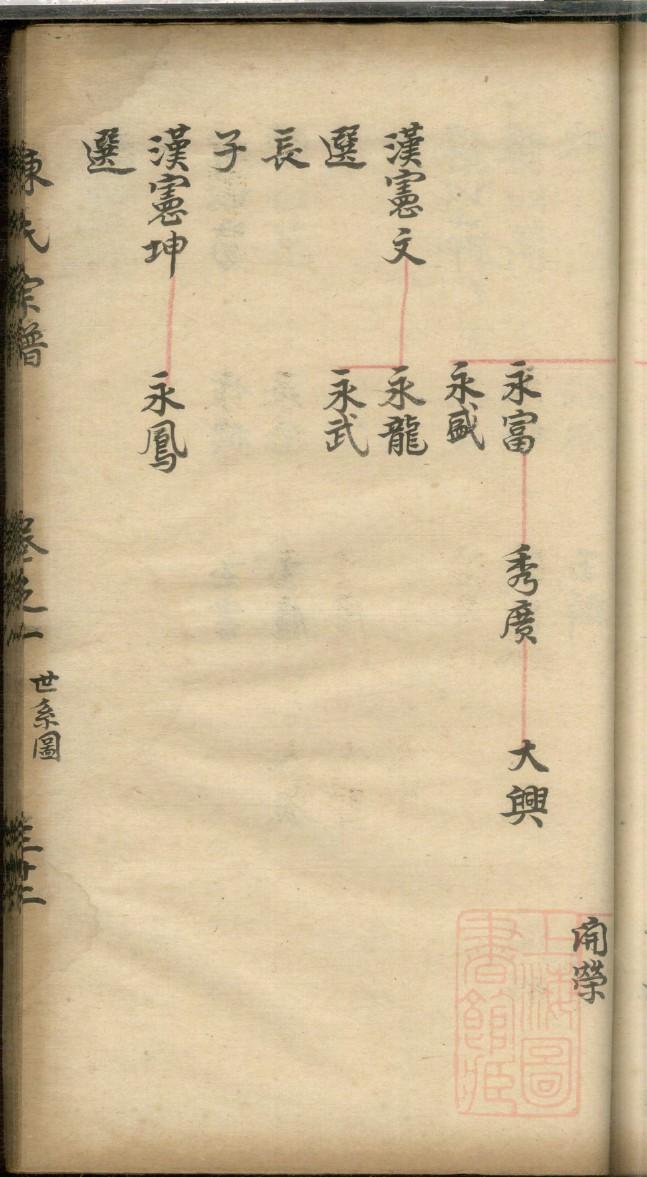 開榮
永富
秀廣
大興
永盛
漢憲文
永龍
選
永武
長
子
漢憲坤
永鳳
選
陳氏宗譜
卷之一
世系圖
三十二
上海圖
書館藏